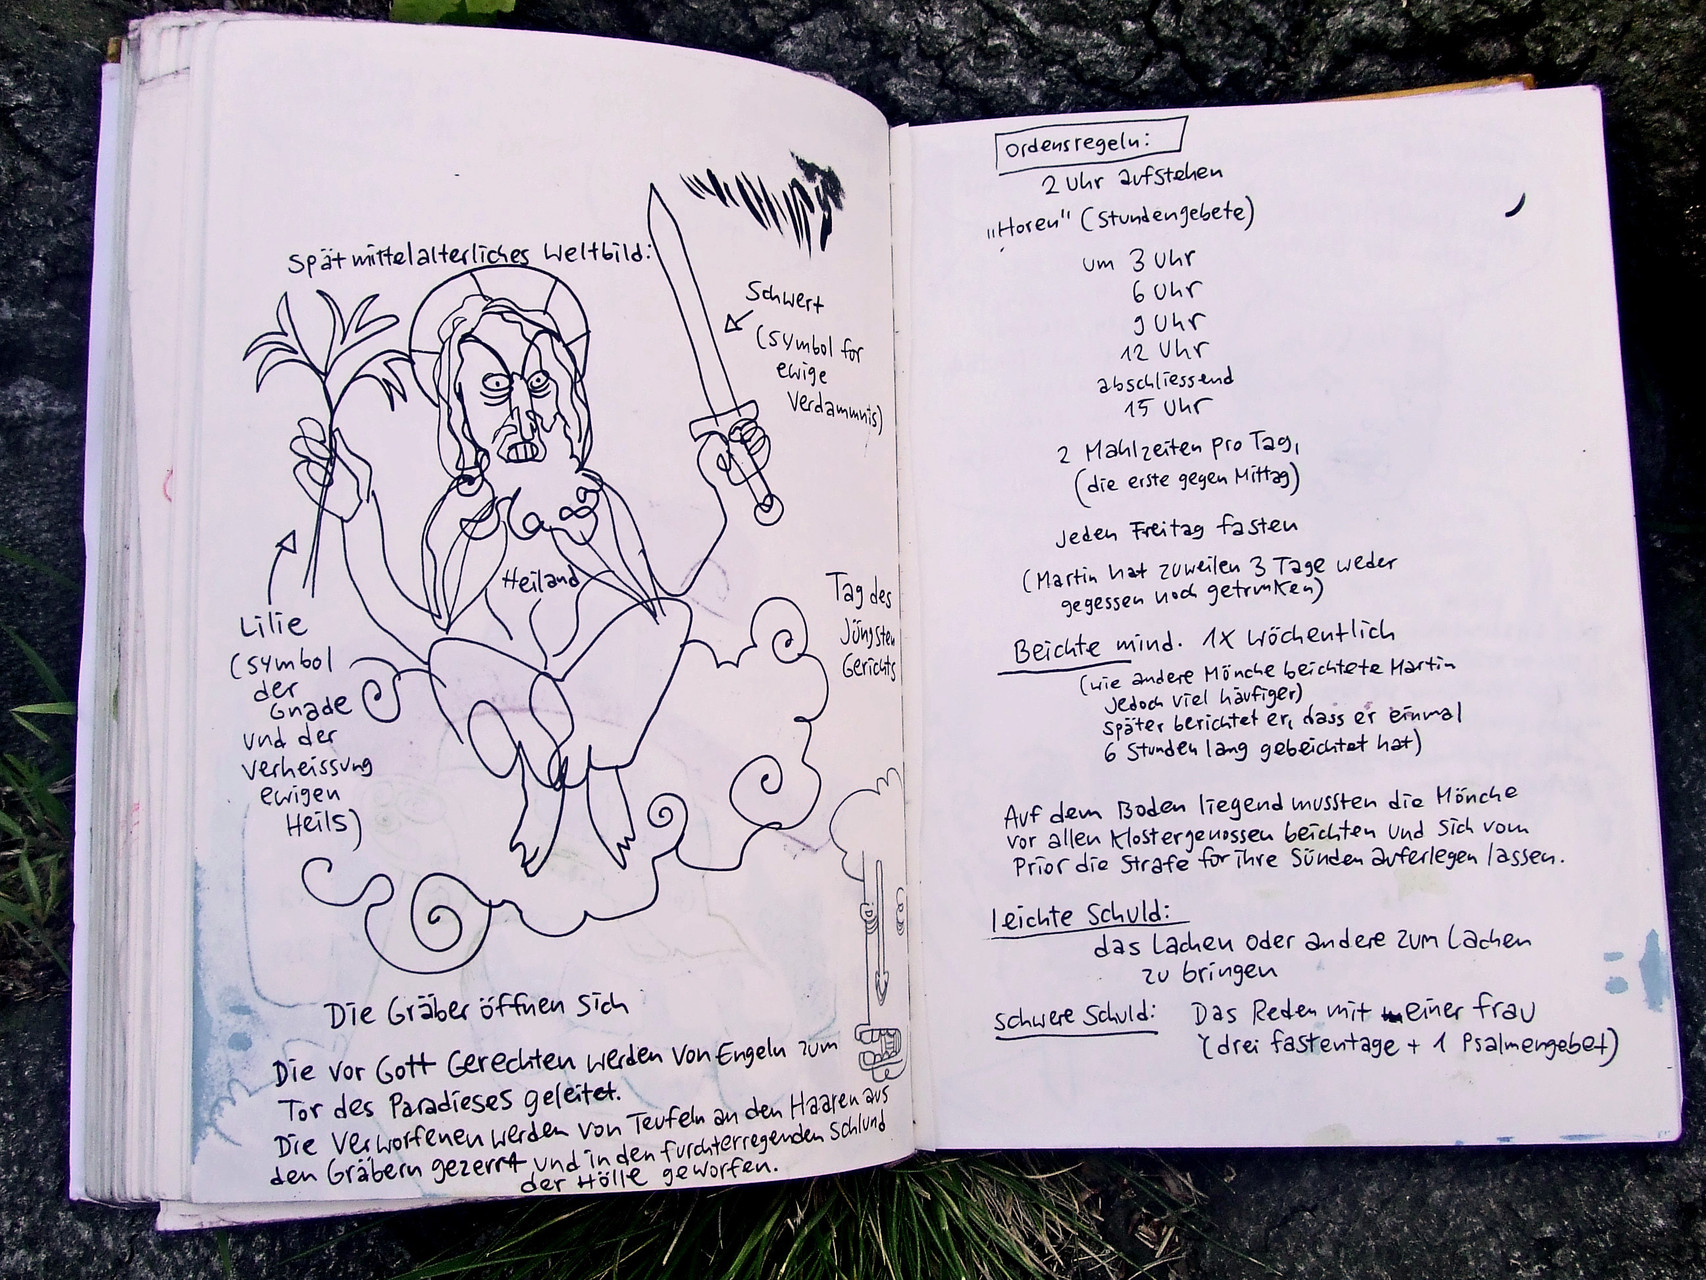 Spätmittelalterliches Weltbild:
Schwert
(Symbol für
ewige
Verdammnis)
Heiland
Tag des
Jüngsten
Gerichts
Lilie
(Symbol
der
Gnade
und der
Verheissung
ewigen
Heils)
Die Gräber öffnen sich
Die vor Gott Gerechten werden von Engeln zum
Tor des Paradieses geleitet.
Die Verworfenen werden von Teufeln an den Haaren aus
den Gräbern gezerrt und in den furchterregenden Schlund
der Hölle geworfen.
Ordensregeln:
2 Uhr aufstehen
„Horen" (Stundengebete)
um 3 Uhr
6 Uhr
9 Uhr
12 Uhr
abschliessend
15 Uhr
2 Mahlzeiten pro Tag,
(die erste gegen Mittag)
Jeden Freitag fasten
(Martin hat zuweilen 3 Tage weder
gegessen noch getrunken)
Beichte mind. 1x wöchentlich
(wie andere Mönche beichtete Martin
jedoch viel häufiger)
später berichtet er, dass er einmal
6 Stunden lang gebeichtet hat)
Auf dem Boden liegend mussten die Mönche
vor allen Klostergenossen beichten und sich vom
Prior die Strafe für ihre Sünden auferlegen lassen.
leichte Schuld:
das Lachen oder andere zum Lachen
zu bringen
schwere Schuld: Das Reden mit einer Frau
(drei Fastentage + 1 Psalmengebet)